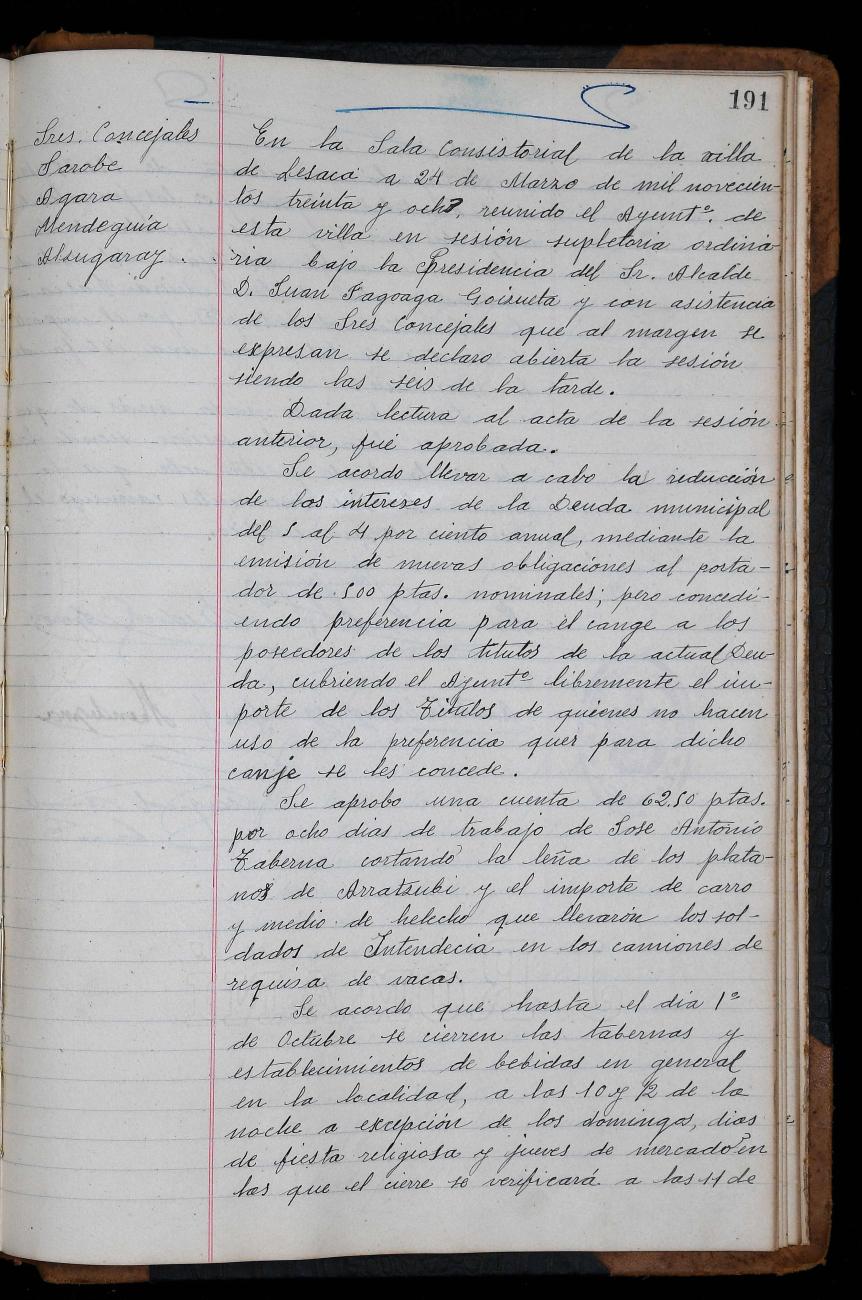 191
Sres. Concejales
Sarobe
Agara
Mendeguía
Alsugaray.
En la Sala Consistorial de la villa
de Lesaca a 24 de Marzo de mil novecien-
tos treinta y ocho, reunido el Ayuntº. de
esta villa en sesión supletoria ordina-
ria bajo la Presidencia del Sr. Alcalde
D. Juan Fagoaga Goizueta y con asistencia
de los Sres Concejales que al margen se
expresan se declaro abierta la sesión
siendo las seis de la tarde.
Dada lectura al acta de la sesión
anterior, fué aprobada.
Se acordo llevar a cabo la reducción
de los intereses de la Deuda municipal
del 5 al 4 por ciento anual, mediante la
emisión de nuevas obligaciones al porta-
dor de 500 ptas. nominales; pero concedi-
endo preferencia para el cange a los
poseedores de los titutos de la actual Deu-
da, cubriendo el Ayuntº libremente el im-
porte de los Titulos de quienes no hacen
uso de la preferencia quer para dicho
canje se les concede.
Se aprobo una cuenta de 62.50 ptas.
por ocho dias de trabajo de Jose Antonio
Taberna cortando la leña de los plata-
nos de Arratzubi y el importe de carro
y medio de helecho que llevarón los sol-
dados de Intendecia en los camiones de
requisa de vacas.
Se acordo que hasta el dia 1º
de Octubre se cierren las tabernas y
establecimientos de bebidas en general
en la localidad, a las 10 y ½ de la
noche a excepción de los domingos, dias
de fiesta religiosa y jueves de mercado en
los que el cierre se verificará a las 11 de